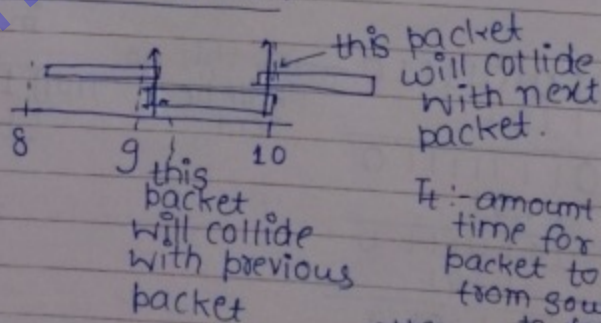 this packet
will collide
with next
packet.
8
9
10
this
packet
will collide
with previous
packet
It :- amount
time for
packet to
from sou